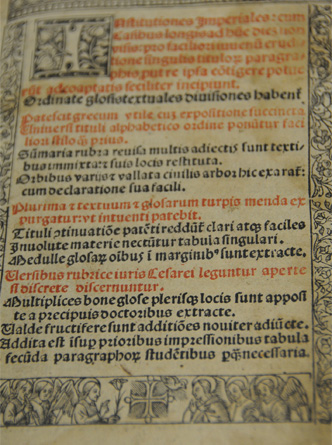 Institutiones Imperiales: cum
Casibus longis ad hec diez nouis
uis: pro faciliori iuuenū erudi
tione singulis titulorꝫ paragra
phis, put re ipsa cōtigere potue
rūt adcoaptatis feciliter incipiunt.
Ordinate glosis textuales diuisiones habent
Patescit grecum vtile cuz expositione succincta
Uniuersi tituli alphabetico ordine ponūtur faci
liori stilo q̃ prius.
Sūmaria rubra reuisa multis adiectis sunt texti
bus immixta et suis locis restituta.
Orbibus varijs vallata ciuilis arbor hic exarat̃
cum declaratione sua facili.
Plurima et textuum et glosarum turpis menda ex
purgatur: vt intuenti patebit.
Tituli cōtinuatiōe patēti reddūt̃ clari atq̃ faciles
Inuolute materie nectūtur tabula singulari.
Medulle glosaꝝ oībus ī marginibꝰ sunt extracte.
Uersibus rubrice iuris Cesarei leguntur aperte
si discrete discernuntur.
Multiplices bone glose plerisqꝫ locis sunt apposi
te a precipuis doctoribus extracte.
Valde fructifere sunt additiōes nouiter adiūcte.
Addita est īsup prioribus impressionibus tabula
fecūda paragraphoꝝ studētibus pq̃ necessaria.